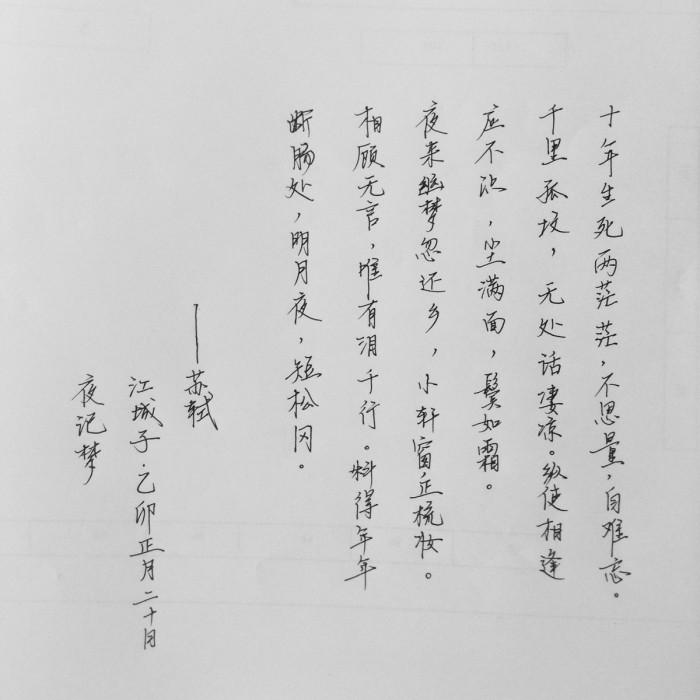 十年生死两茫茫，不思量，自难忘。
千里孤坟，无处话凄凉。纵使相逢
应不识，尘满面，鬓如霜。
夜来幽梦忽还乡，小轩窗正梳妆。
相顾无言，惟有泪千行。料得年年
断肠处，明月夜，短松冈。
——苏轼
江城子·乙卯正月二十日
夜记梦